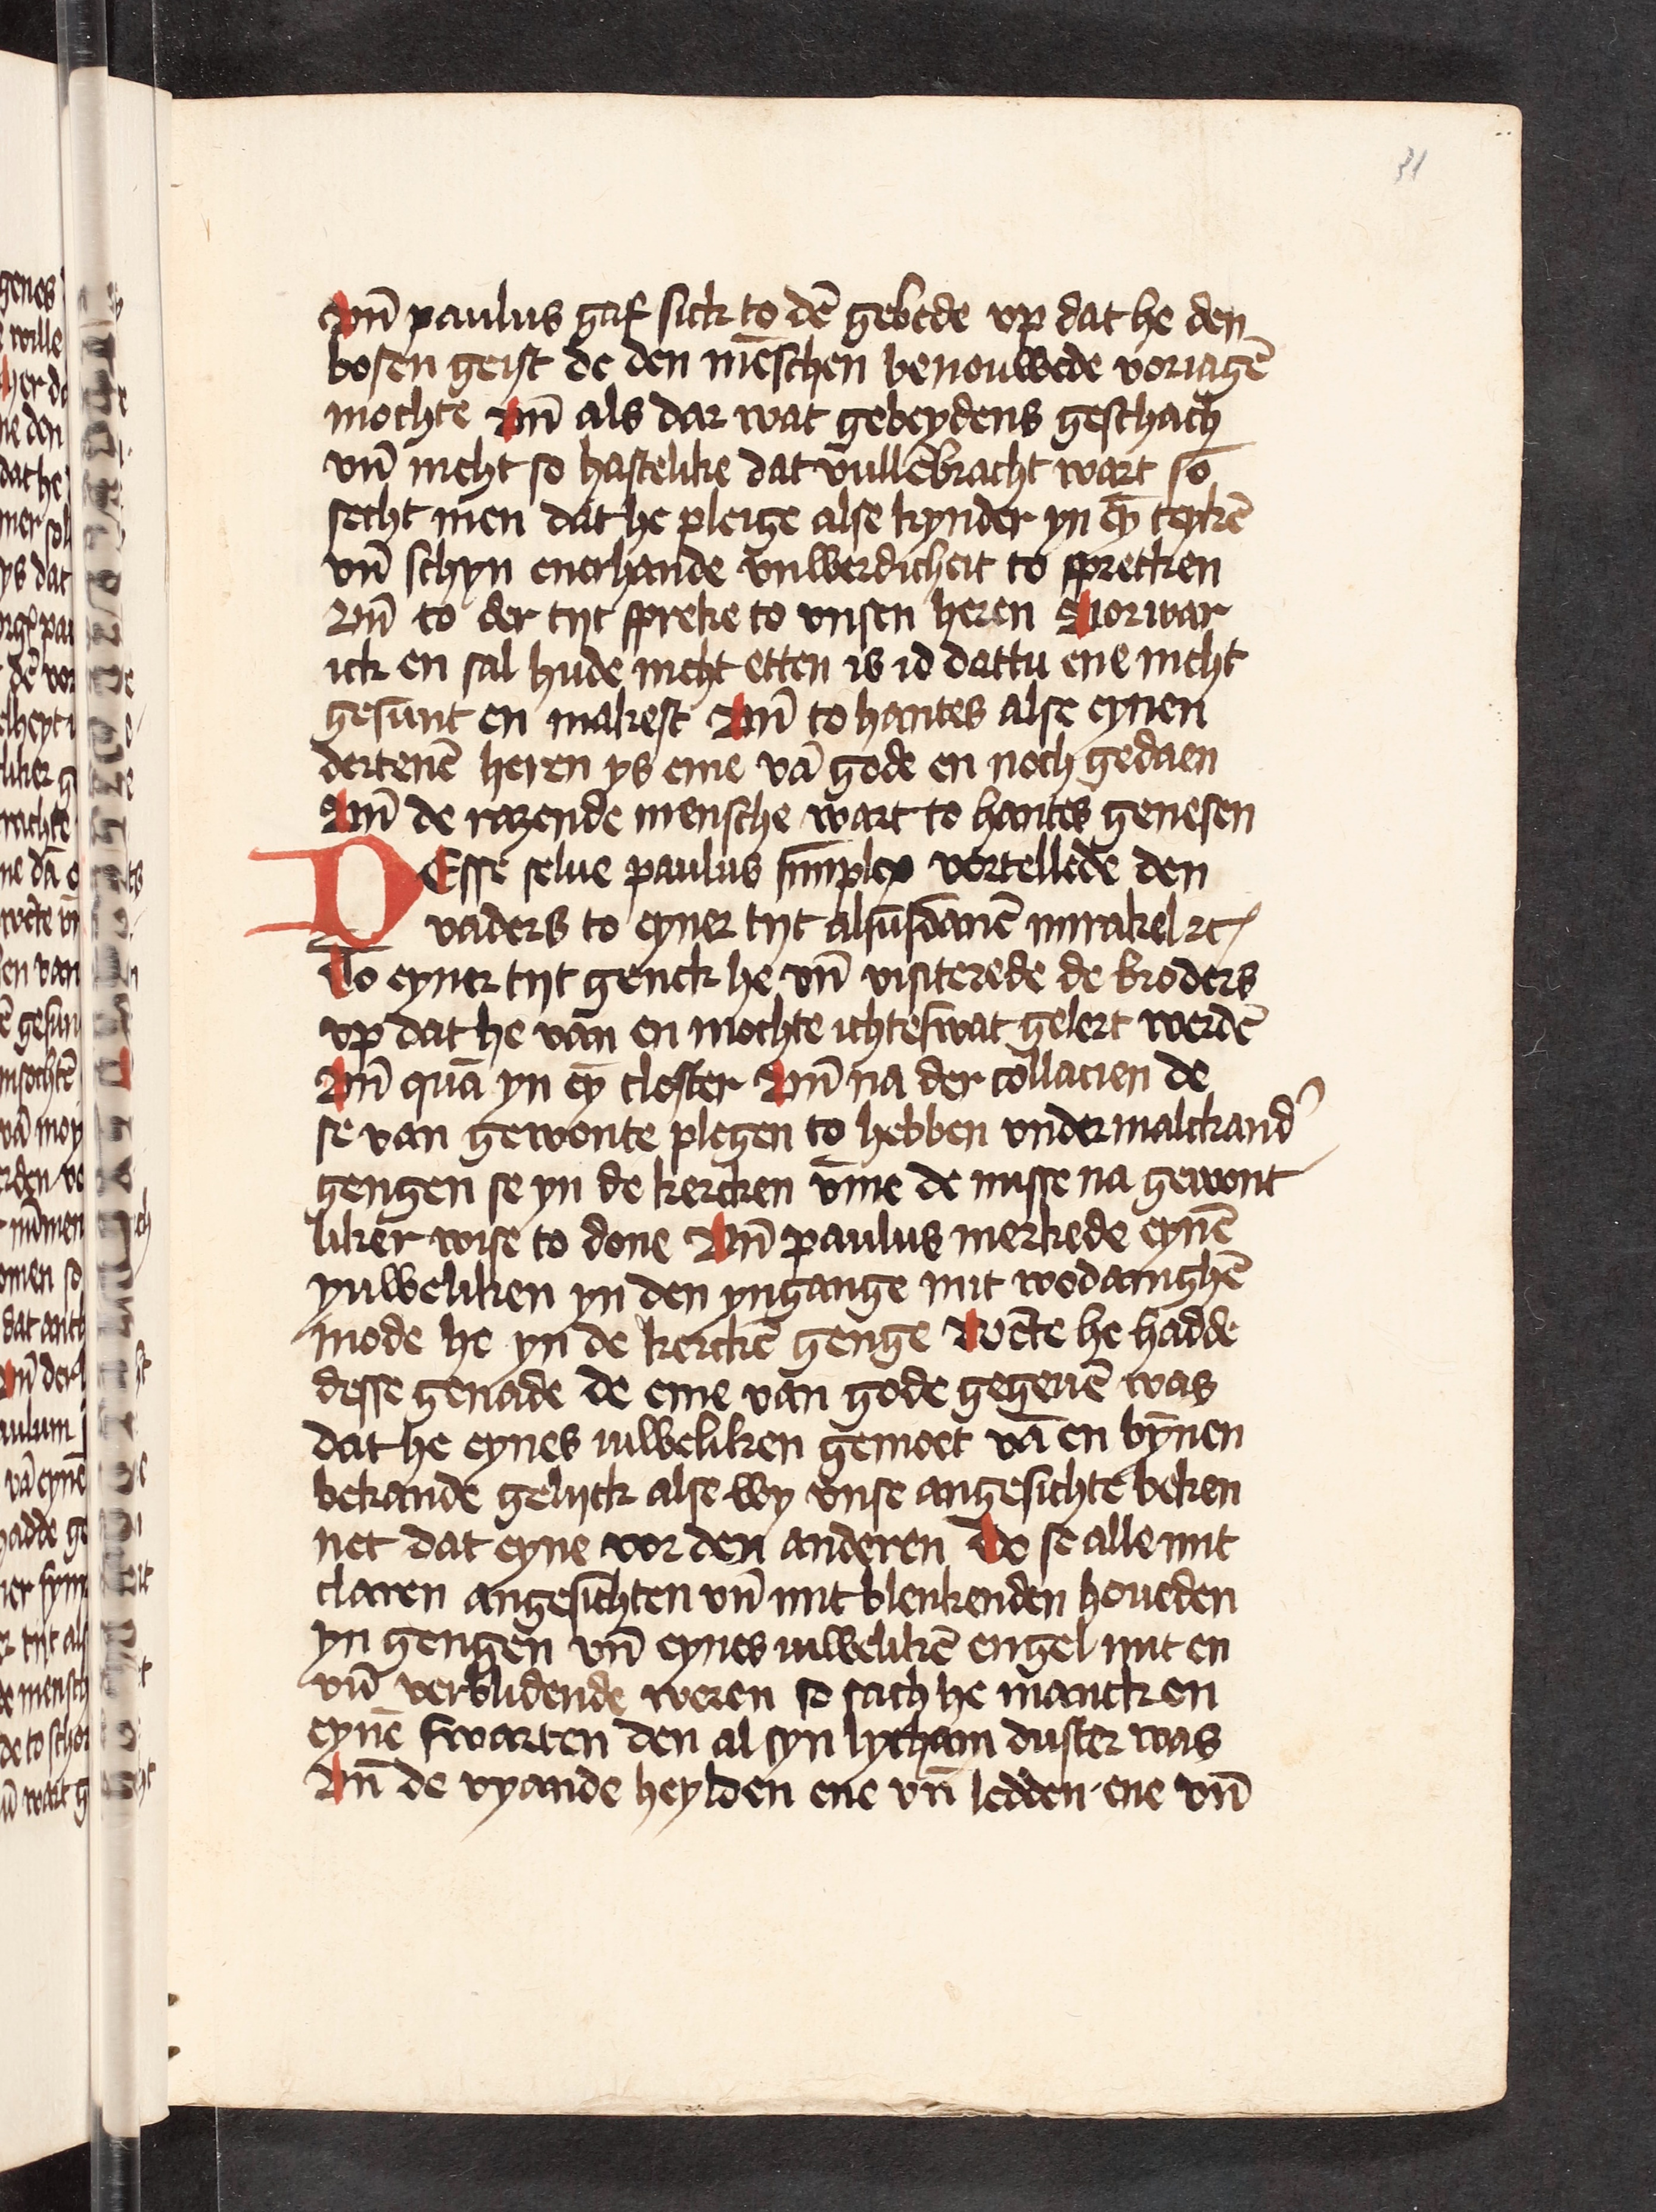 31
Vn̄ paulus gaf sick to dē gebede vp dat he den
bosen geist de den mēschen benouwede voriagē
mochte Vn̄ als dar wat gebeydens geschach
vn̄ nicht so hastelike dat vullēbracht wart so
secht men dat he pleige alse kynder yn eȳ teykē
vn̄ schyn enerhande vnwerdicheit to sprecken
Vn̄ to der tijt spreke to vnsen heren Vorwar
ick en sal hude nicht etten is id dattu ene nicht
gesunt en makest Vn̄ to hantes alse eynen
dertenē heren ys eme vā gode en noch gedaen
Vn̄ de razende mensche wart to hantes genesen
DEsse selue paulus simplex vortellede den
vaders to eyner tijt alsusdanē mirakel ꝛc
To eyner tijt genck he vn̄ visiterede de broders
vp dat he van en mochte ichteswat gelert werdē
Vn̄ quā yn eȳ closter Vn̄ na der collacien de
se van gewonte plegen to hebben vnder malckand᾽
gengen se yn de kercken vm̄e de misse na gewont
liker wise to done Vn̄ paulus merkede eynē
yuweliken yn den yngange mit wodanighē
mode he yn de kerckē genge Wēte he hadde
desse genade de eme van gode gegeuē was
dat he eynes iuweliken gemoet vā en bȳnen
bekande gelijck alse wy vnse angesichte beken
net dat eyne vor den anderen Do se alle mit
claren angesichten vn̄ mit blenkenden houeden
yn gengen vn̄ eynes iuwelikē engel mit en
vn̄ verblidende weren so sach he manck en
eynē swarten den al syn lycham duster was
Vn̄ de vyande heylden ene vn̄ ledden ene vn̄